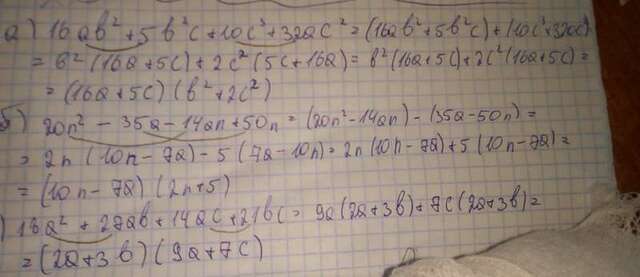 а) 16ab² + 5b²c + 10c³ + 32ac² = (16ab² + 5b²c) + (10c³ + 32ac²)
= b²(16a + 5c) + 2c²(5c + 16a) = b²(16a + 5c) + 2c²(16a + 5c) =
= (16a + 5c)(b² + 2c²)
б) 20n² - 35a - 14an + 50n = (20n² - 14an) - (35a - 50n) =
= 2n(10n - 7a) - 5(7a - 10n) = 2n(10n - 7a) + 5(10n - 7a) =
= (10n - 7a)(2n + 5)
) 18a² + 27ab + 14ac + 21bc = 9a(2a + 3b) + 7c(2a + 3b) =
= (2a + 3b)(9a + 7c)